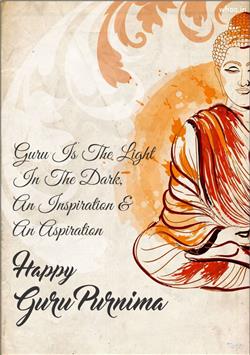 whoa.in
Guru Is The Light
In The Dark,
An Inspiration &
An Aspiration
Happy
Guru Purnima